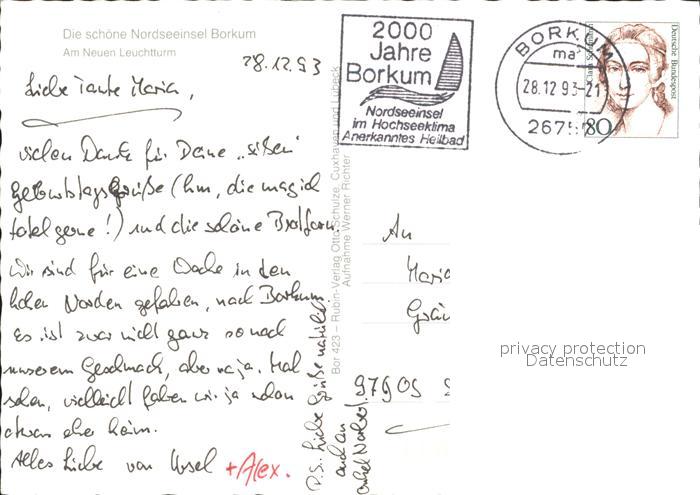 Die schöne Nordseeinsel Borkum
Am Neuen Leuchtturm
28.12.93
Liebe Tante Maria,
vielen Dank für Deine „süßen“
Geburtstagsgrüße (hm, die mag ich
total gerne!) und die schöne
Wir sind für eine Woche in den
hohen Norden gefahren, nach Borkum.
Es ist zwar nicht ganz so nach
unserem Geschmack, aber na ja. Mal
sehen, vielleicht fahren wir ja schon
etwas eher heim.
Alles Liebe von Ursel + Alex.
P.S. Liebe Grüße natürlich
auch an
Onkel Norbert.
Bor 423 – Rubin-Verlag Otto Schulze, Cuxhaven und Lübeck
Aufnahme Werner Richter
2000
Jahre
Borkum
Nordseeinsel
im Hochseeklima
Anerkanntes Heilbad
BORKUM
ma
28.12.93-21
2675
80
Deutsche Bundespost
An
Maria
97909
privacy protection
Datenschutz